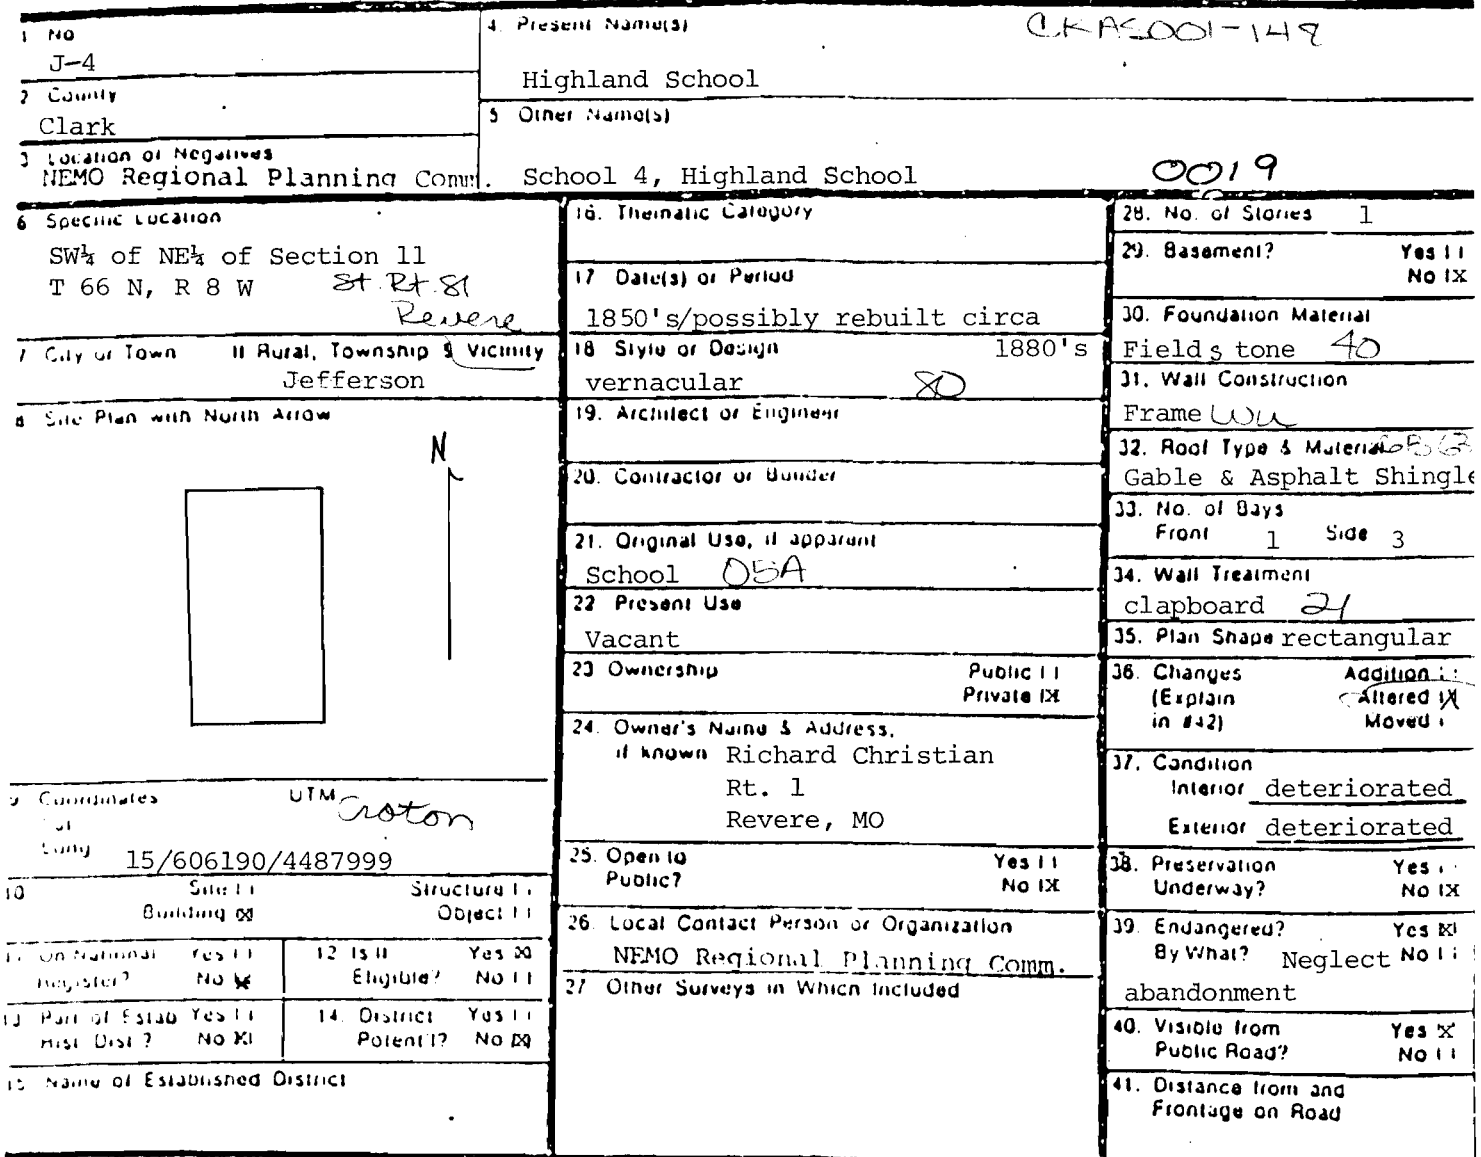 1 No
J-4
2 County
Clark
3 Location of Negatives
NEMO Regional Planning Comm.
4. Present Name(s)
CKAS001-148
Highland School
5 Other Name(s)
School 4, Highland School
0019
6 Specific Location
SW¼ of NE¼ of Section 11
T 66 N, R 8 W St. Rt. 81
Revere
7 City or Town If Rural, Township & Vicinity
Jefferson
8 Site Plan with North Arrow
N
9 Coordinates UTM Croton
Lat
Long
15/606190/4487999
10 Site [ ] Structure [ ]
Building [X] Object [ ]
11 On National Yes [ ]
Register? No [X]
12 Is It Yes [X]
Eligible? No [ ]
13 Part of Estab Yes [ ]
Hist. Dist.? No [X]
14. District Yes [ ]
Potent'l? No [X]
15 Name of Established District
16. Thematic Category
17 Date(s) or Period
1850's/possibly rebuilt circa
1880's
18 Style or Design
vernacular 80
19. Architect or Engineer
20. Contractor or Builder
21. Original Use, if apparent
School 05A
22 Present Use
Vacant
23 Ownership Public [ ]
Private [X]
24. Owner's Name & Address,
if known Richard Christian
Rt. 1
Revere, MO
25. Open to Yes [ ]
Public? No [X]
26. Local Contact Person or Organization
NEMO Regional Planning Comm.
27 Other Surveys in Which Included
28. No. of Stories 1
29. Basement? Yes [ ]
No [X]
30. Foundation Material
Fieldstone 40
31. Wall Construction
Frame WU
32. Roof Type & Material
Gable & Asphalt Shingle
33. No. of Bays
Front 1 Side 3
34. Wall Treatment
clapboard 21
35. Plan Shape rectangular
36. Changes Addition [ ]
(Explain Altered [X]
in #42) Moved [ ]
37. Condition
Interior deteriorated
Exterior deteriorated
38. Preservation Yes [ ]
Underway? No [X]
39. Endangered? Yes [X]
By What? Neglect No [ ]
abandonment
40. Visible from Yes [X]
Public Road? No [ ]
41. Distance from and
Frontage on Road